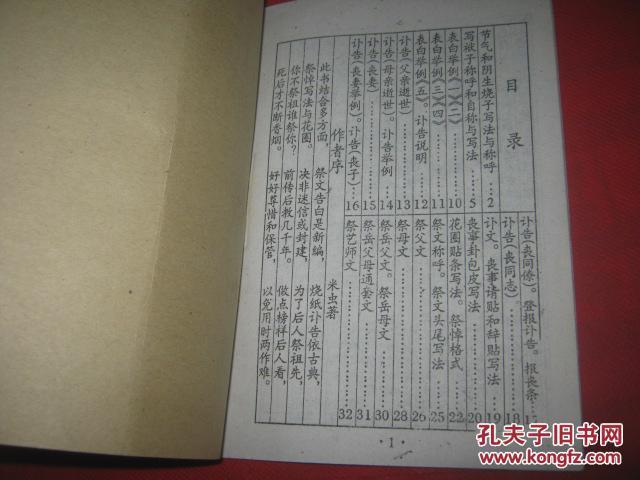 目录
节气和阴生烧子写法与称呼……2
写袱子称呼和自称与写法……5
表白举例《一》《二》……10
表白举例《三》《四》……11
表白举例《五》。讣告说明……12
讣告(父亲逝世)……13
讣告(母亲逝世)。讣告举例……14
讣告(丧妻)……15
讣告(丧妻举例)。讣告(丧子)……16
讣告(丧同僚)。登报讣告。报丧条…17
讣告(丧同志)……18
讣文。丧事请贴和辞贴写法……19
丧事卦包皮写法……20
花圈贴条写法。祭悼格式……22
祭文称呼。祭文头尾写法……25
祭父文……26
祭母文……28
祭岳父文。祭岳母文……30
祭岳父母通套文……31
祭艺师文……32
作者序
米虫著
此书结合多方面，祭文告白是新编，烧纸讣告依古典，
祭悼写法与花圈。决非迷信或封建，为了后人祭祖先，
你不祭祖谁祭你？前传后教几千年。做点榜祥后人看，
死后才不断香烟。好好尊惜和保管，以免用时两作难。
·1·
孔夫子旧书网
KONGFZ.COM